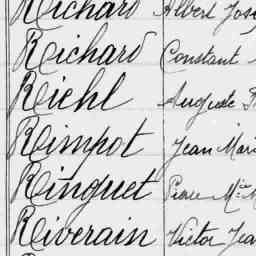 Richard Albert
Richard Constant
Riehl Auguste
Rimpot Jean
Ringuet Pierre
Riverain Victor